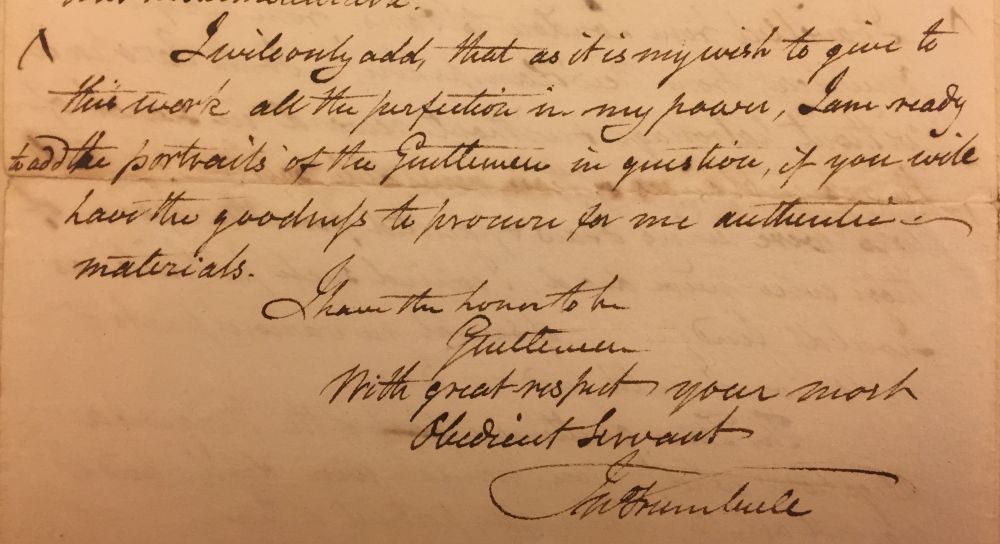 I will only add, that as it is my wish to give to
this work all the perfection in my power, I am ready
to add the portraits of the Gentlemen in question, if you will
have the goodness to procure for me authentic
materials.
I have the honor to be
Gentlemen
With great respect your most
Obedient Servant
Jno Trumbull